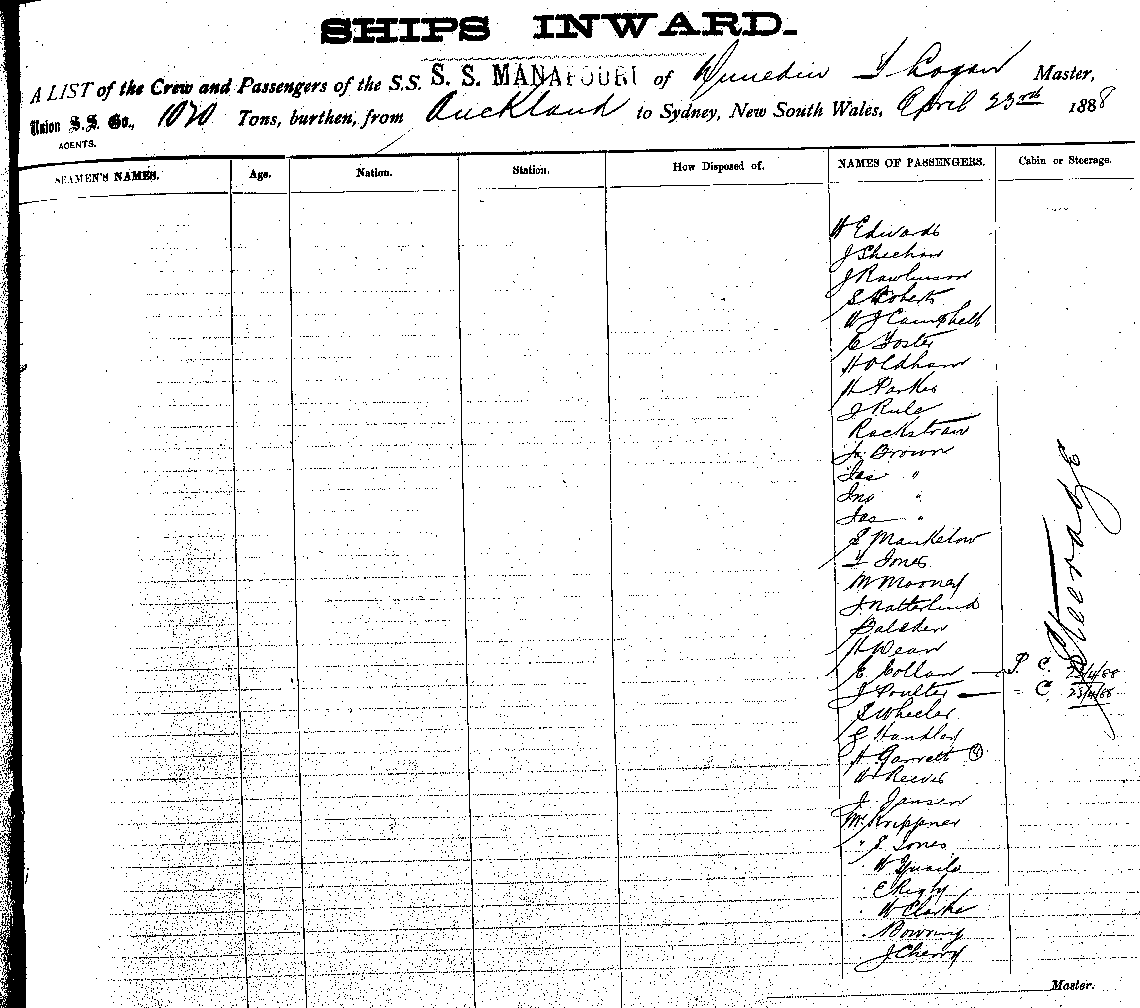 SHIPS INWARD.
A LIST of the Crew and Passengers of the S.S. S. S. MANAPOURI of Dunedin T Logan Master,
Union S.S. Co., 1020 Tons, burthen, from Auckland to Sydney, New South Wales, April 23rd 1888
AGENTS.
SEAMEN'S NAMES. Age. Nation. Station. How Disposed of. NAMES OF PASSENGERS. Cabin or Steerage.
W Edwards
J Sheehan
J Rawlinson
S Roberts
W J Campbell
C Foster
H Oldham
H Parker
J Rule
Rackstraw
Brown
Jas "
Jno "
Jas "
Manketow
T Jones
M Mooney
J Natterlund
H Dean
E Collan — P. C. 23/4/88
J Poulter — " C. 23/4/88
Steerage
S Wheeler
G Handley
H Garrett ④
W Reeves
J Jansen
Mr Krippner
" J Jones
W Quaile
E Rigby
W Clarke
Downing
J Cherry
Master.